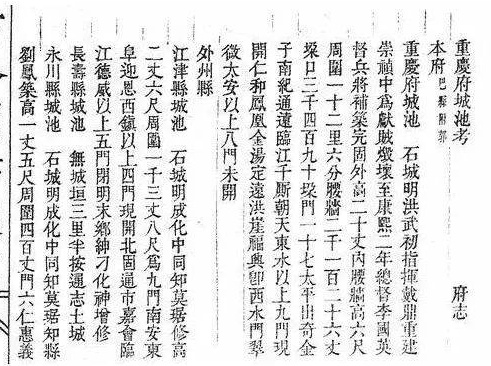 重慶府城池考 府志
本府 巴縣附郭
重慶府城池 石城明洪武初指揮戴鼎重建
崇禎中爲獻賊燬壞至康熙二年總督李國英
督兵將補築完固外高二十丈內腰牆高六尺
周圍一十二里六分腰牆二千一百二十六丈
垜口二千四百九十垜門一十七太平出奇金
子南紀通遠臨江千厮朝天東水以上九門現
開仁和鳳凰金湯定遠洪崖福興卽西水門翠
微太安以上八門未開
外州縣
江津縣城池 石城明成化中同知莫琚修高
二丈六尺周圍一千三丈八尺爲九門南安東
阜迎恩西鎮以上四門現開北固通市嘉會臨
江德威以上五門閉明末鄉紳刁化神增修
長壽縣城池 無城垣三里半按通志土城
永川縣城池 石城明成化中同知莫琚知縣
劉鳳築高一丈五尺周圍四百丈門六仁惠義